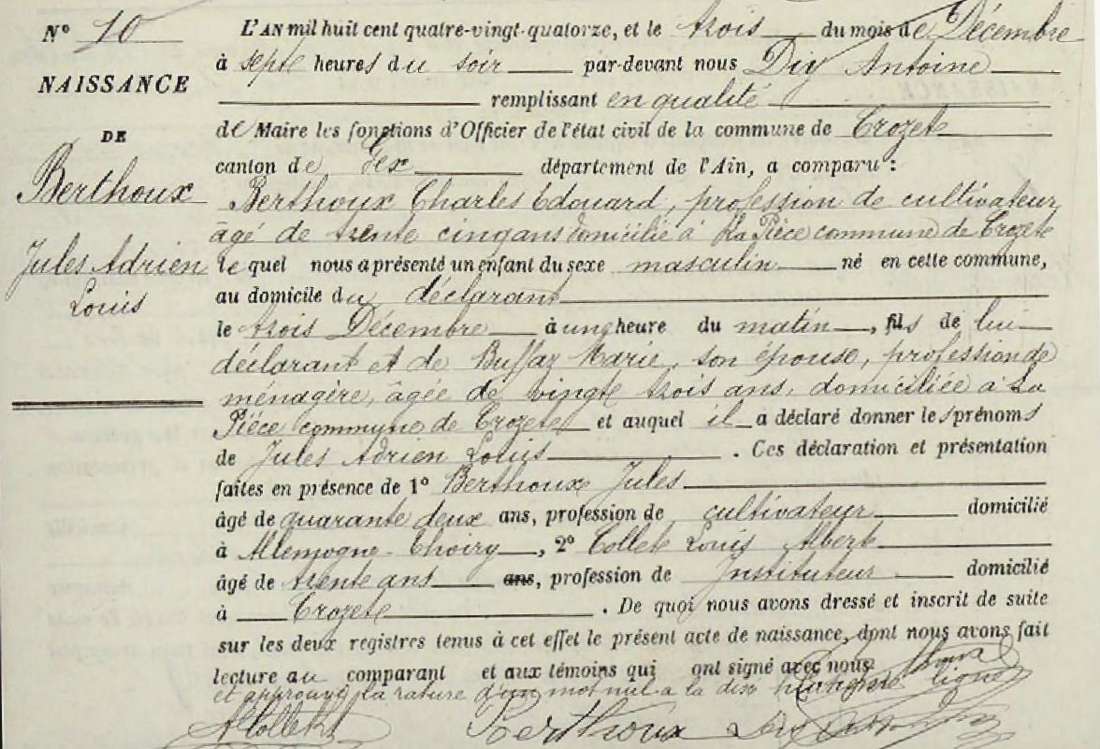 N° 10
NAISSANCE
DE
Berthoux
Jules Adrien
Louis
L'AN mil huit cent quatre-vingt-quatorze, et le trois du mois de Décembre
à sept heures du soir par-devant nous Diy Antoine
remplissant en qualité
de Maire les fonctions d'Officier de l'état civil de la commune de Crozet
canton de Gex département de l'Ain, a comparu :
Berthoux Charles Edouard, profession de cultivateur,
âgé de trente cinq ans domicilié à La Pièce commune de Crozet
lequel nous a présenté un enfant du sexe masculin né en cette commune,
au domicile du déclarant
le trois Décembre à une heure du matin, fils de lui
déclarant et de Buffaz Marie, son épouse, profession de
ménagère, âgée de vingt trois ans, domiciliée à La
Pièce commune de Crozet et auquel il a déclaré donner les prénoms
de Jules Adrien Louis . Ces déclaration et présentation
faites en présence de 1° Berthoux Jules
âgé de quarante deux ans, profession de cultivateur domicilié
à Allemogne-Thoiry, 2° Collet Louis Albert
âgé de trente ans ans, profession de Instituteur domicilié
à Crozet . De quoi nous avons dressé et inscrit de suite
sur les deux registres tenus à cet effet le présent acte de naissance, dont nous avons fait
lecture au comparant et aux témoins qui ont signé avec nous
et approuvé la rature d'un mot nul à la dix ligne
A Collet Berthoux